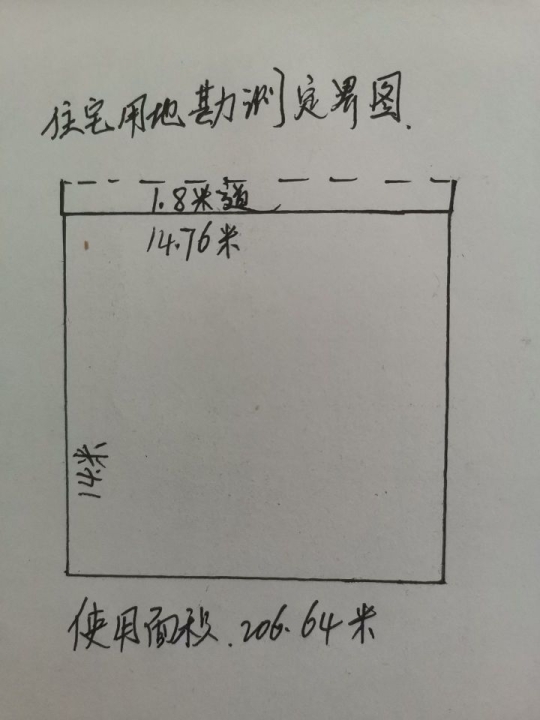 住宅用地勘测定界图.
1.8米道
14.76米
14米
使用面积.206.64米